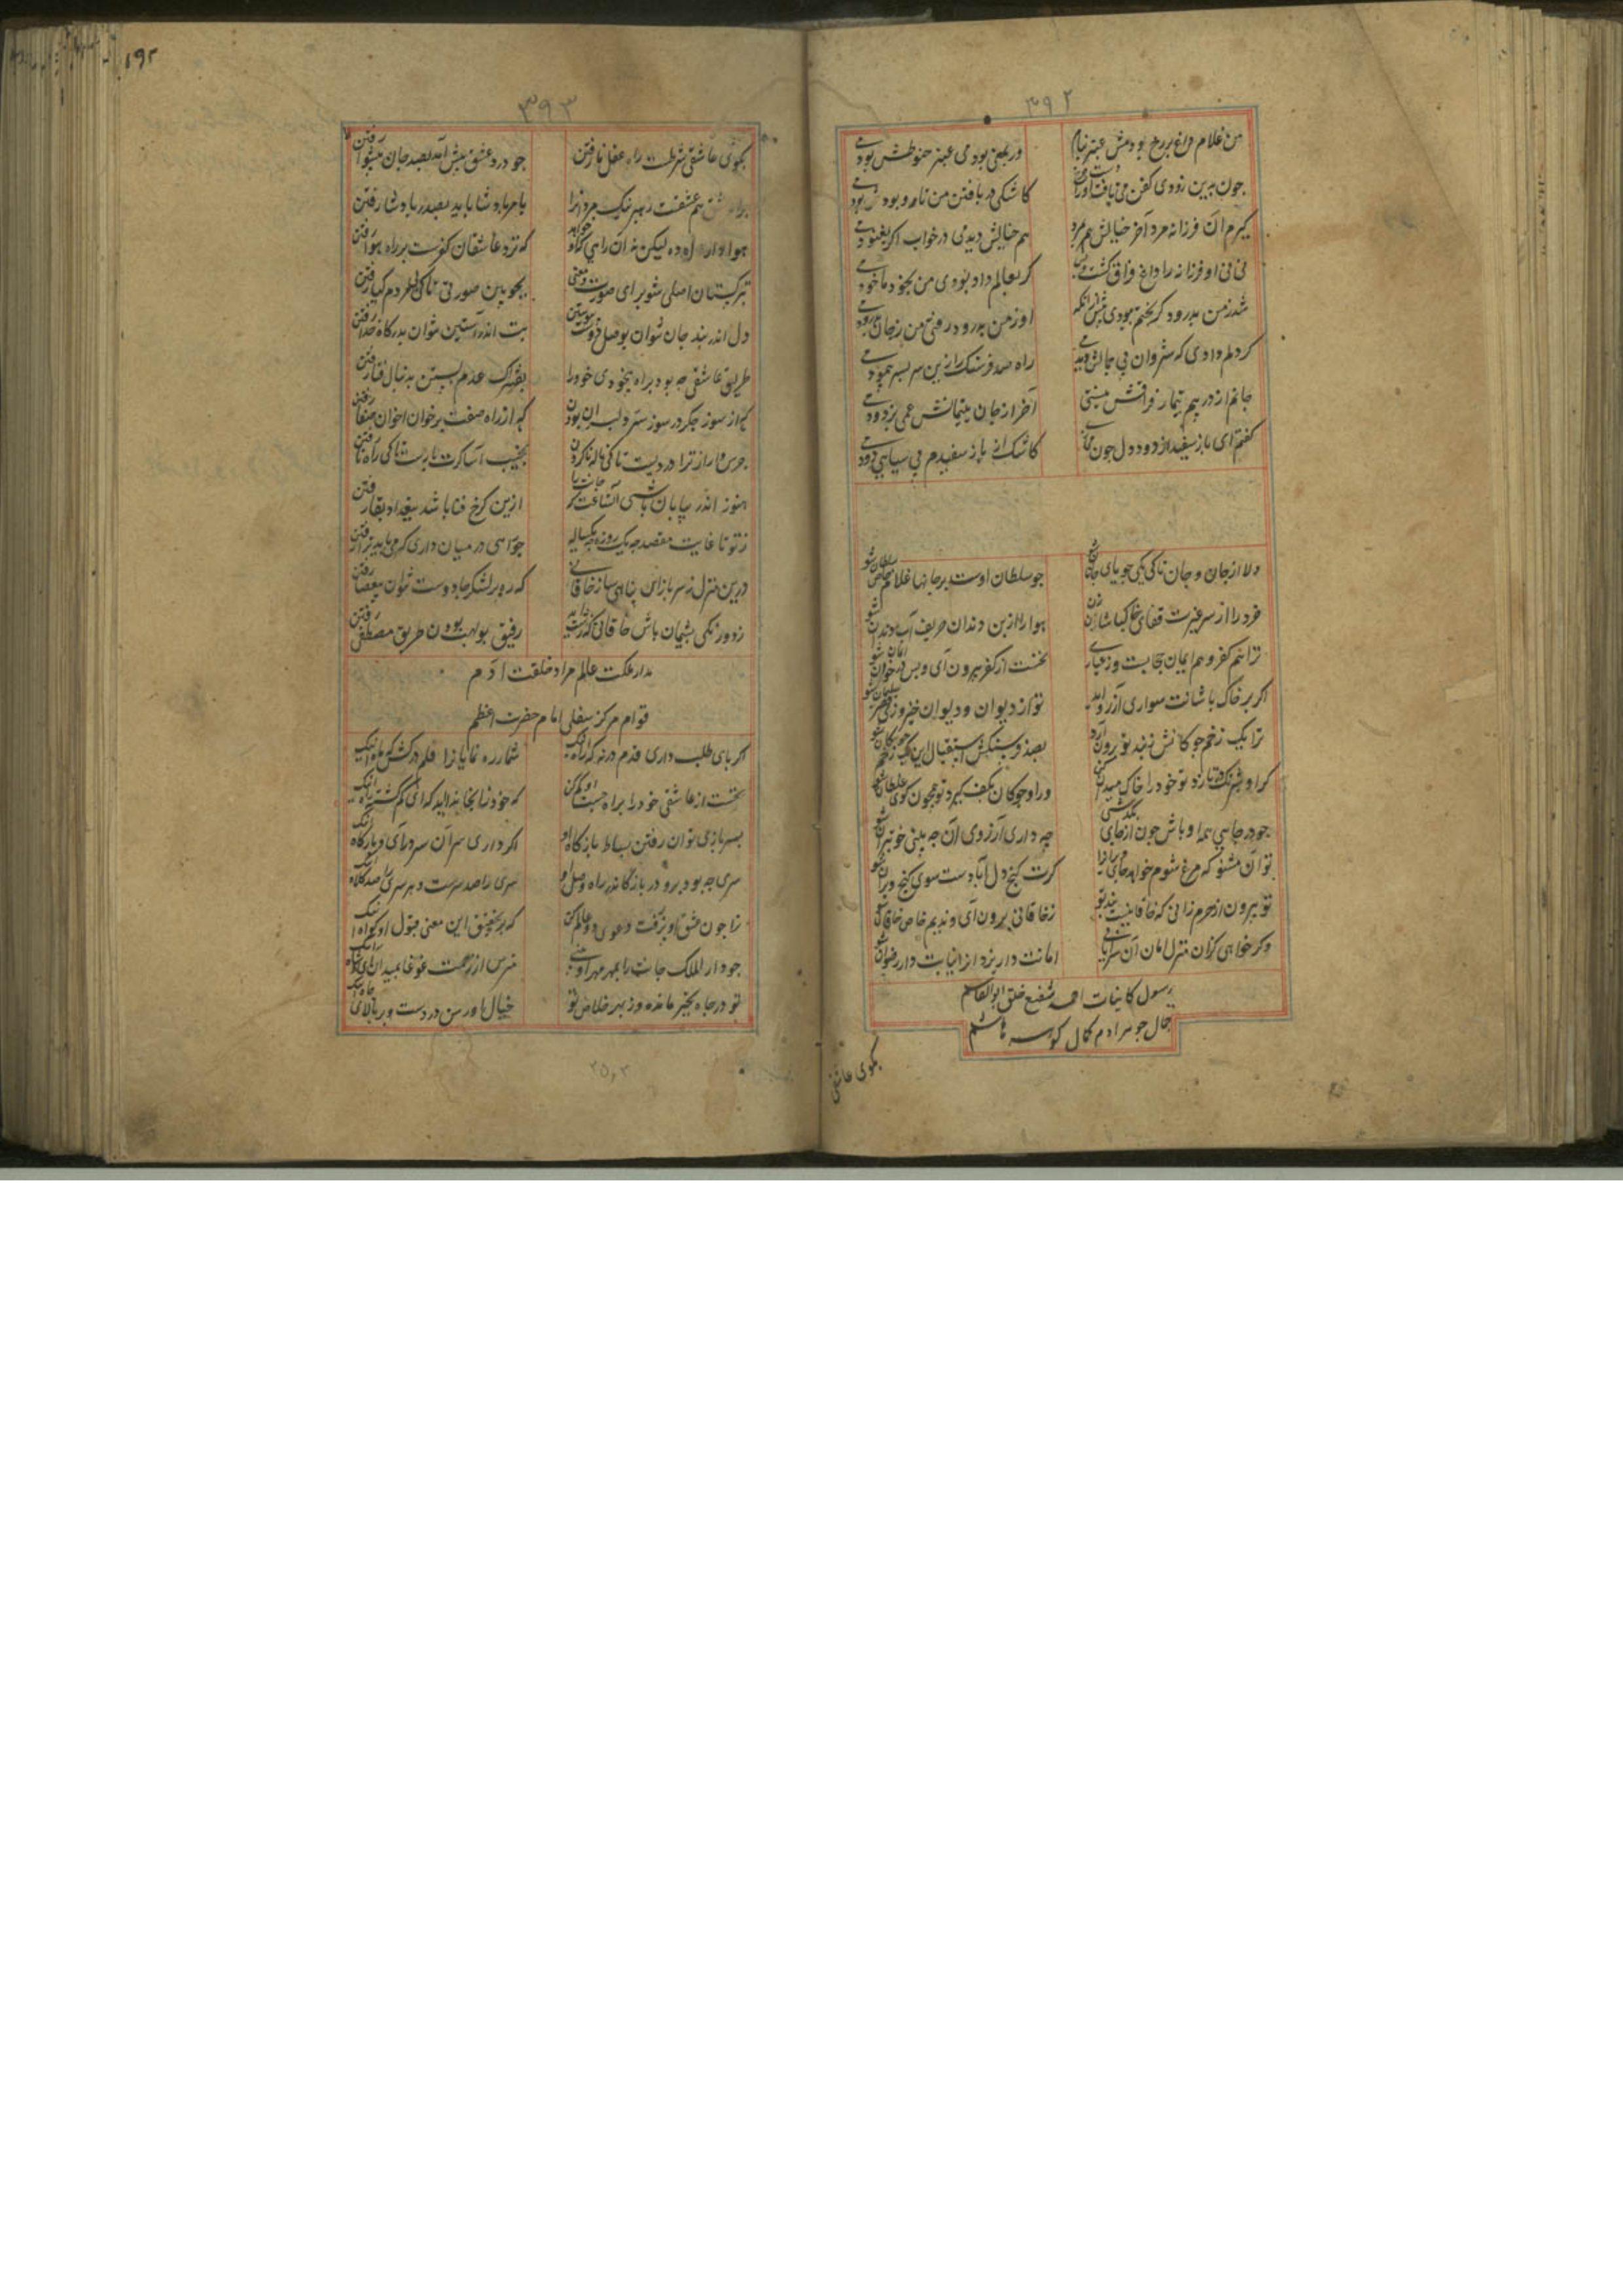 ۳۹۲
من غلام داغ بر رخ بودمش عنبر بنام
ور بمعنی بودمی عنبر حنوطش بودمی
چون بدین زودی کفن می بافت او را دست
کاشکی در بافتن من تار و پودش بودمی
گیرم آن فرزانه مرد آخر خیالش هم نمرد
هم خیالش دیدمی در خواب اگر بغنودمی
نی نی او فرزانه را داغ فراق کشت و بس
گر بعالم داد بودی من بخود ماخودمی
شد ز من بدرود گر بختم بودی پیش ازانکه
او ز من بدرود رفتی من ز جان بدرودمی
کر دلم دادی که شروان بی جمالش دیدمی
راه صد فرسنگ را زین سر بسر پیمودمی
جانم ار در نیم تیمار فراقش نیستی
آخر از جان یتیمانش غمی بزدودمی
گفتم ای باز سفید از دود دل چون می
کاشک از باز سفیدم بی سیاهی دودمی
دلا از جان و جان تا کی یکی جویای جانان شو
چو سلطان اوست بر جانها غلام خاص سلطان شو
خرد را از سر غیرت قفای خاکپاشان زن
هوا را از بن دندان حریف آب دندان شو
ترا هم کفر و هم ایمان حجابست ور عیاری
نخست از کفر بیرون آی و پس در خون ایمان شو
اگر بر خاک پاشانت سواری آرزو آید
تو از دیوان و دیوان خیز و زی قصر سلیمان شو
ترا یک زخم چوگانش زند تو بیرون آرد
بصد و سنگش استقبال این یک زخم چوگان شو
گر او شبرنگ در تازد تو خود را خاک میدان کن
ور او چوگان بکف گیرد تو همچون گوی غلطان شو
چو در جایی همه او باش چون از جای بگذشتی
چه داری آرزوی آن چه بینی خوبتر آن شو
تو آن مشنو که مرغ شوم خواهد جای ویران را
گرت گنج دل آبادست سوی گنج ویران شو
تو بیرون از حرم زانی که خاقانیست بند تو
ز خاقانی برون آی و ندیم خاص خاقان شو
وگر خواهی کزان منزل امان آن سرا یابی
امانت دار یزدان از نیابت دار رضوان شو
رسول کاینات احمد شفیع خلق ابوالقاسم
جمال جوهر آدم کمال گوهر هاشم
بکوی عاشقی
۱۹۲
۳۹۳
بکوی عاشقی شرطست راه عقل نارفتن
چو درد عشق پیش آید بصد جان پیشوا رفتن
براه عشق هم عشقت رهبر نیک مردانرا
بامر پادشا باید بصدر پادشا رفتن
هوا در راه ده لیکن نه آن راهی که او خواهد
که نزد عاشقان کفرست بر راه هوا رفتن
بترکستان اصلی شو برای صورت و معنی
بچو بین صورتی تا کی بی مردم گیا رفتن
دل اندر بند جان نتوان بوصل دوست پیوستن
بت اندر آستین نتوان بدرگاه خدا رفتن
طریق عاشقی چه بود براه بیخودی خود را
بفتراک عدم بستن بدنبال فنا رفتن
کم از سوز جگر در سوز سر دلبران بودن
کم از راه صفت بر خوان اخوان صفا رفتن
جرس وار از ترا دردیست تا کی ناله ناکردن
نجیب آسا گرت بارست تا کی راه نارفتن
هنوز اندر بیابان باشی آن ساعت که جانت را
ازین کرخ فنا باشد ببغداد بقا رفتن
ز تو تا غایت مقصد چه یک روزه چه یکساله
چو آهی در میان داری کمی باید ترا رفتن
درین منزل ز سربازان پناهی ساز خاقانی
که ره پر لشکر جادوست نتوان بی عصا رفتن
ز دور نیکی پشیمان باش خاقانی که زشت آید
رفیق بولهب بودن طریق مصطفی رفتن
مدار ملکت عالم مراد خلقت آدم
قوام مرکز سفلی امام حضرت اعظم
اگر پای طلب داری قدم در نه که راه اینک
شمار ره نمایانرا قلم درکش که ماه اینک
نخست از عاشقی خود را براه جست او گم کن
که خود ز انجا ندا آید که ای گم گشته راه اینک
بسربازی توان رفتن بساط بازگاه او
اگر داری سر آن سر درآی و بارگاه اینک
سری چه بود برو در باز کاندر راه وصل او
سری را صد سرست و بر سری را صد کلاه اینک
ترا چون عشق او پذرفت دعوی دو عالم کن
که بر تحقیق این معنی قبول او گواه اینک
چو دار الملک جانت را بمهر مهر او بینی
مترس از زحمت غوغا بمیدان آی شاه اینک
تو در چاه تحیر مانده وز بهر خلاص تو
خیال او رسن در دست و بر بالای چاه اینک